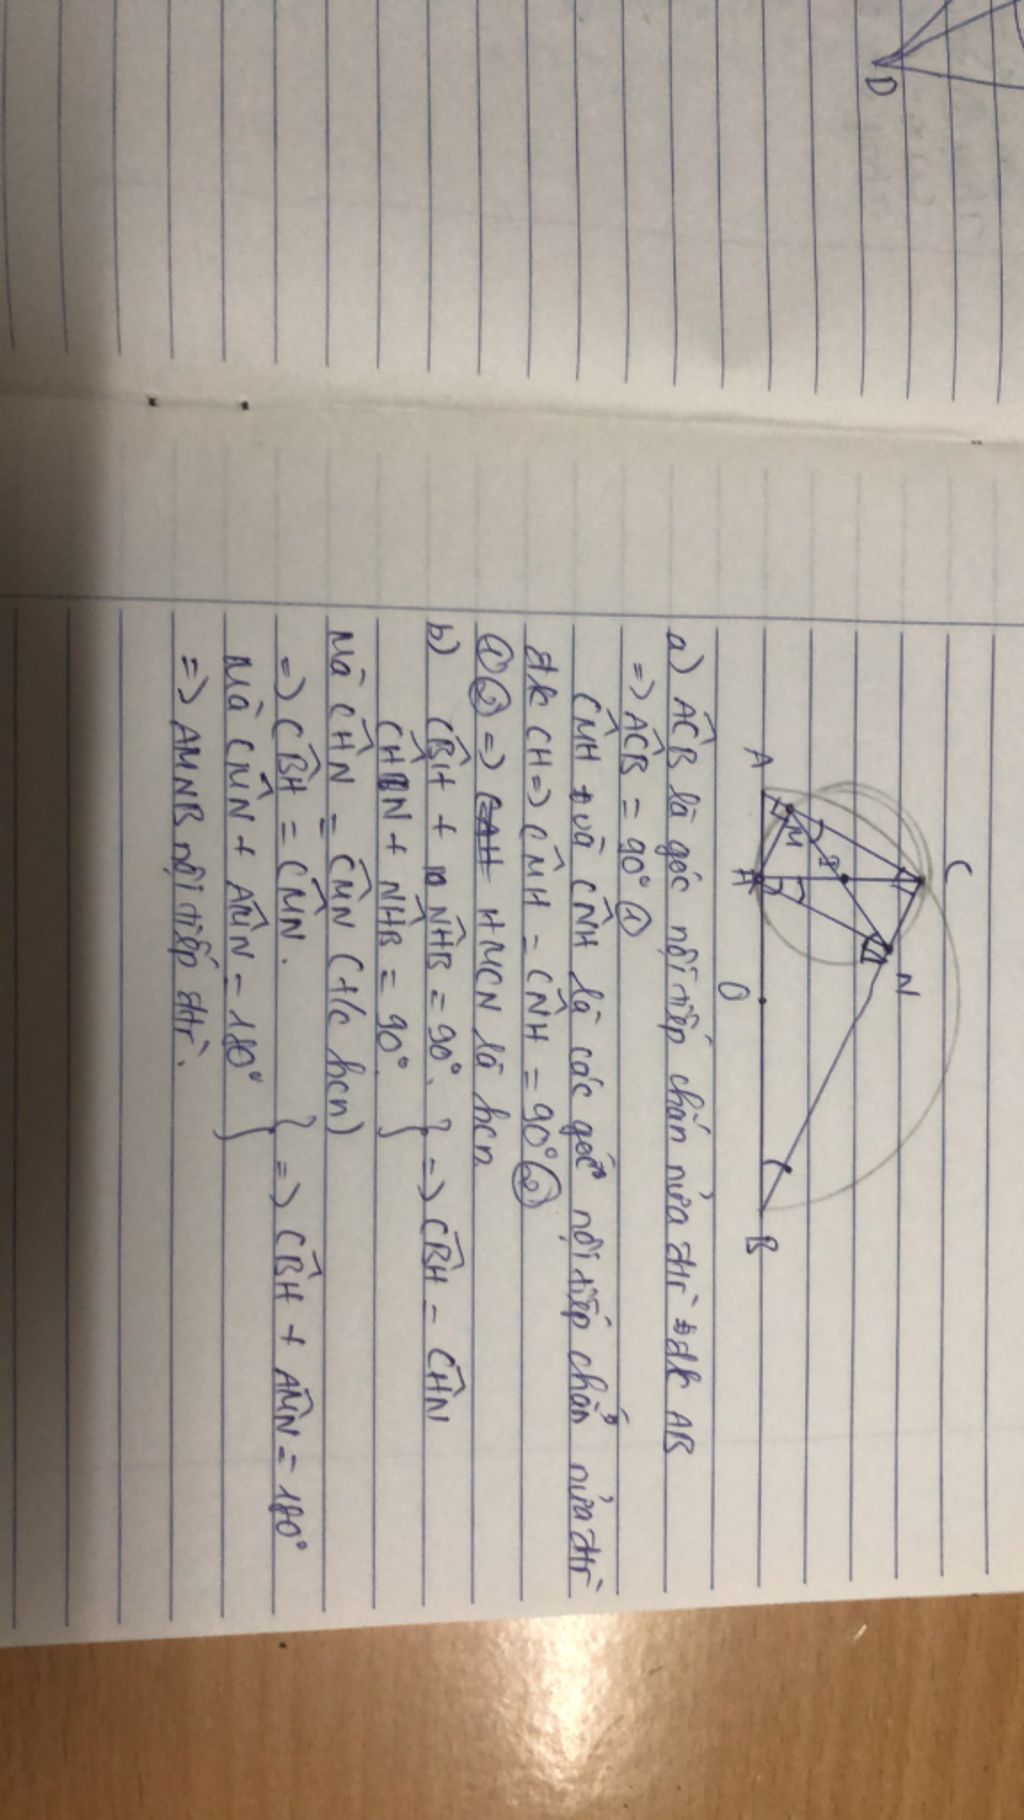 D
C
N
I
M
A
H
O
B
a) ACB̂ là góc nội tiếp chắn nửa đtr đk AB
=> ACB̂ = 90° (1)
CMĤ và CNĤ là các góc nội tiếp chắn nửa đtr
đk CH => CMĤ = CNĤ = 90° (2)
(1)(2) => HMCN là hcn
b) CBĤ + NHB̂ = 90°. } => CBĤ = CHN̂
CHN̂ + NHB̂ = 90°.
Mà CHN̂ = CMN̂ (t/c hcn)
=> CBĤ = CMN̂. } => CBĤ + AMN̂ = 180°
Mà CMN̂ + AMN̂ = 180°
=> AMNB nội tiếp đtr.